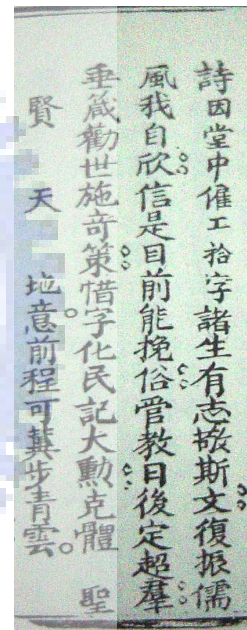 詩因堂中僱工拾字諸生有志救斯文復振儒
風我自欣信是目前能挽俗管教日後定超羣
垂箴勸世施奇策惜字化民記大勳克體聖
賢天地意前程可冀步青雲